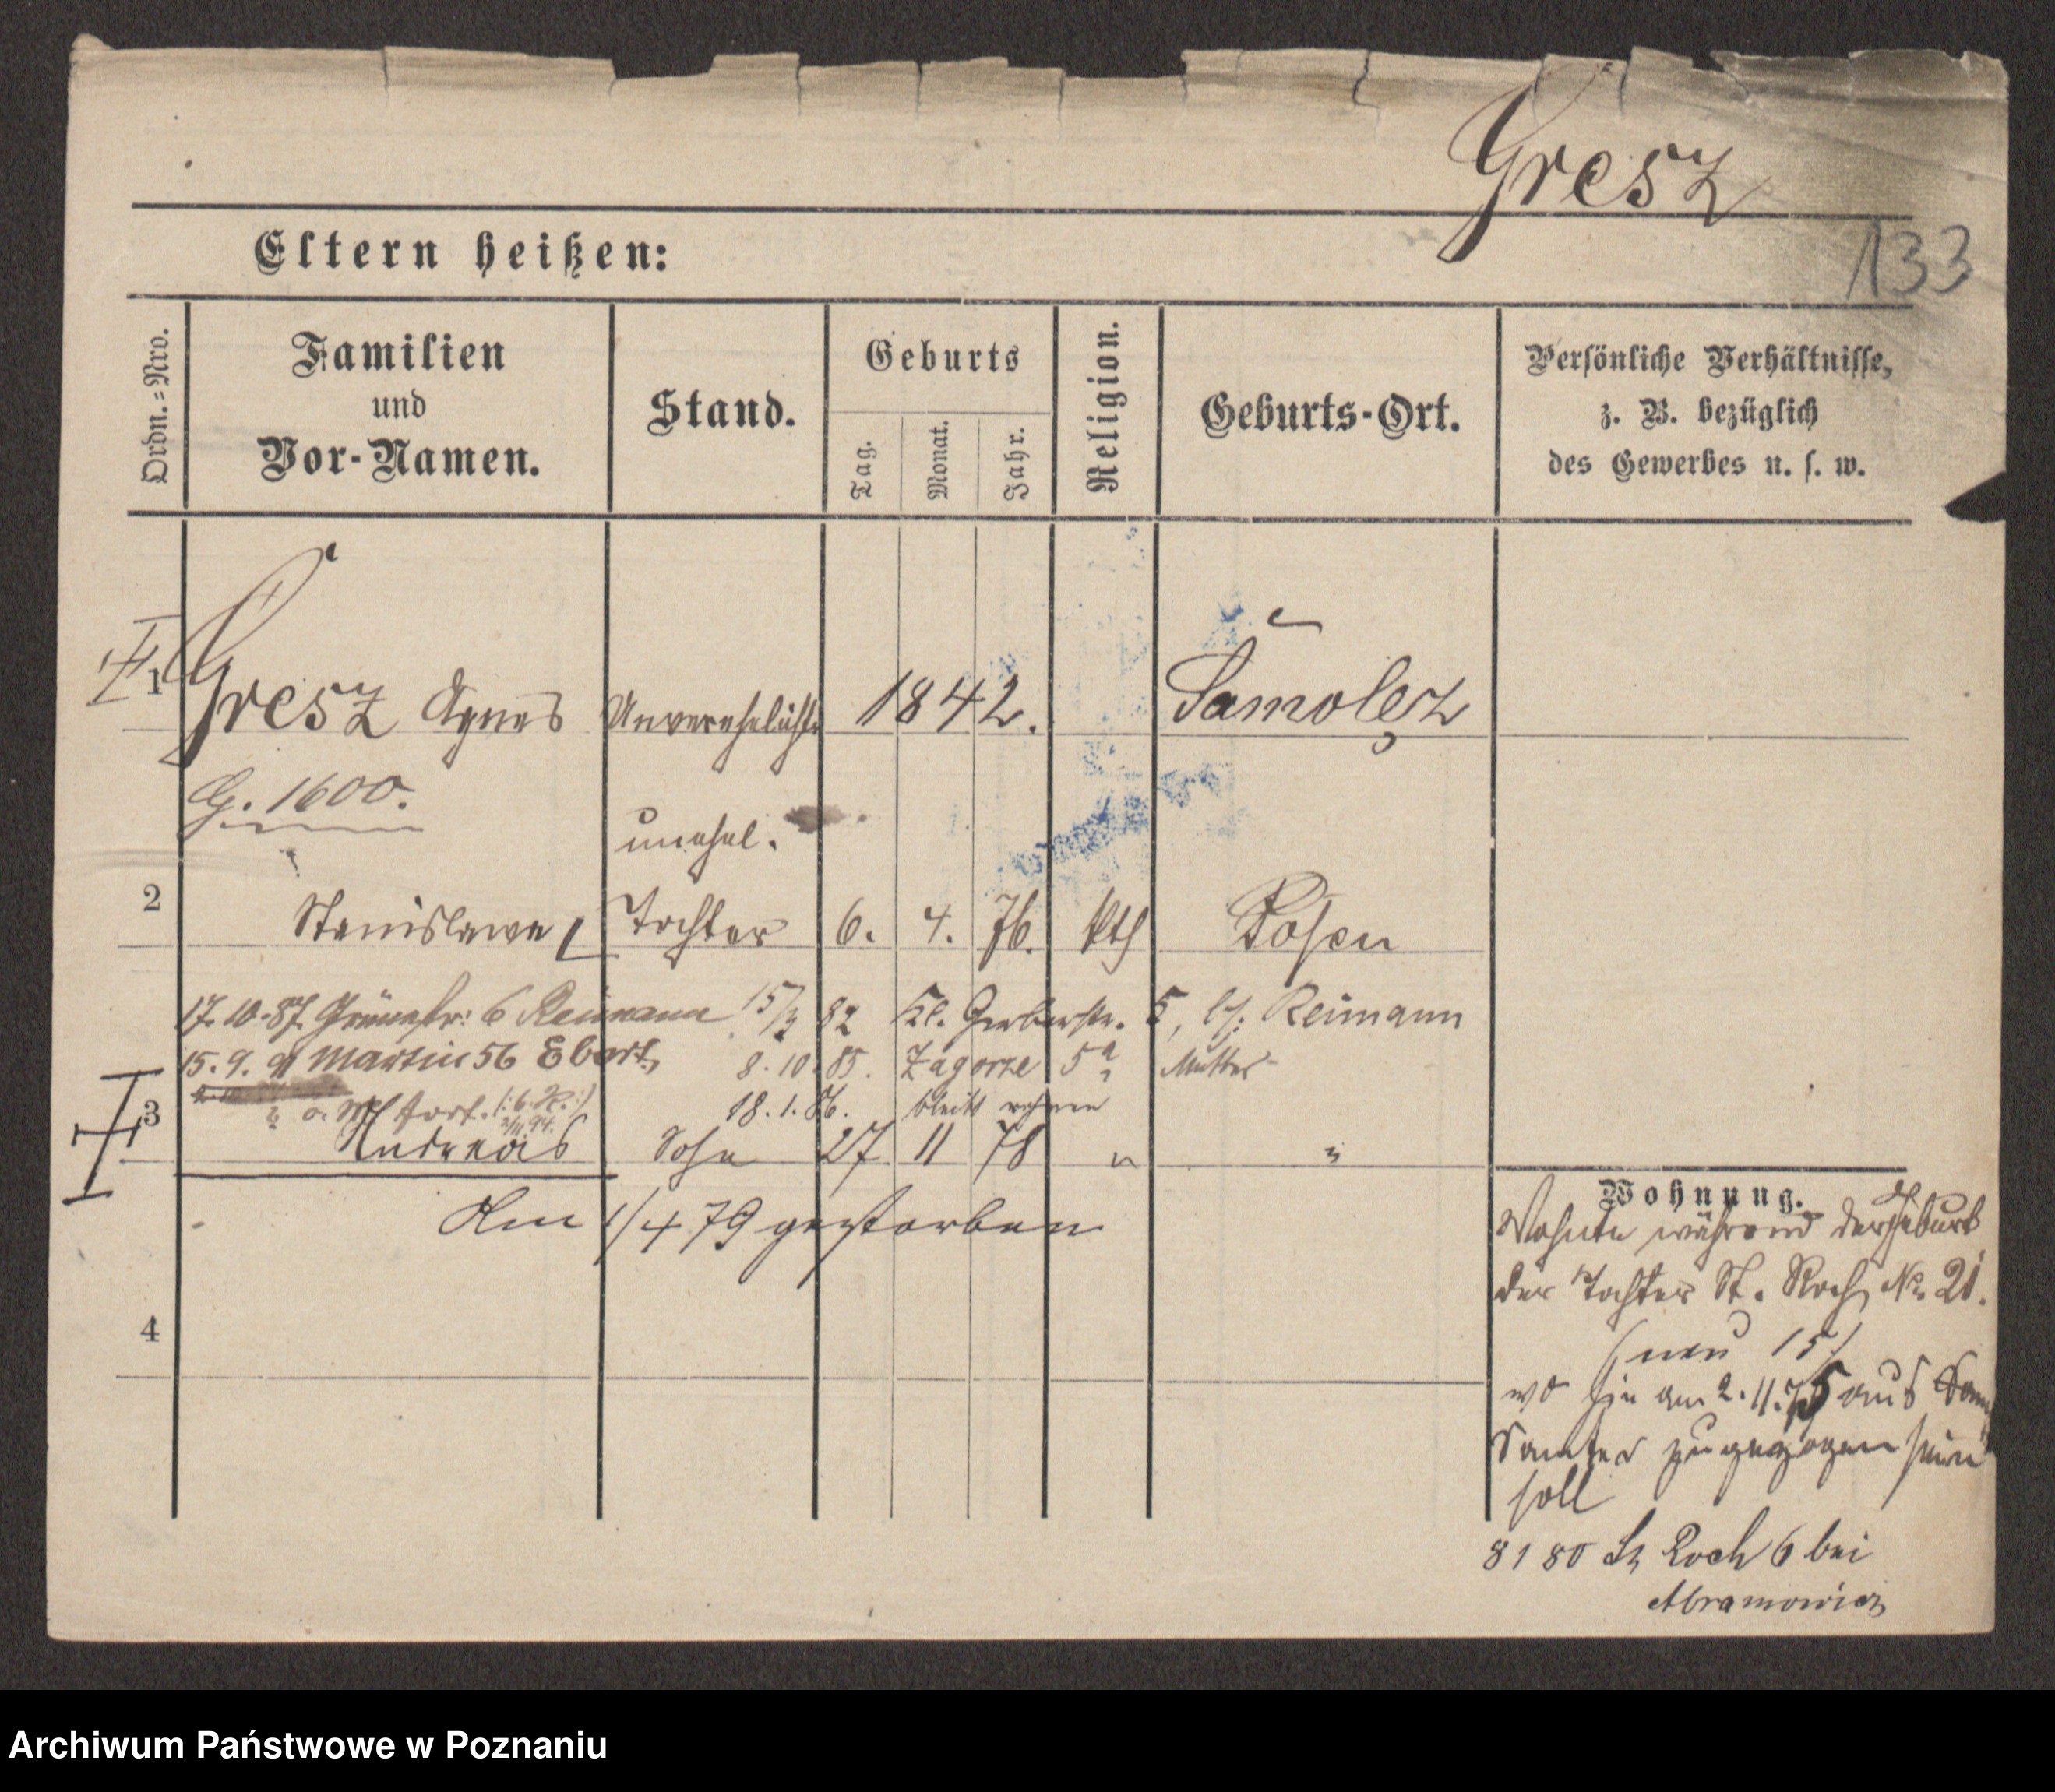 Gresz
133
Eltern heißen:
Ordn.=Nro.
Familien
und
Vor-Namen.
Stand.
Geburts
Tag.
Monat.
Jahr.
Religion.
Geburts-Ort.
Persönliche Verhältnisse,
z. B. bezüglich
des Gewerbes u. s. w.
1 Gresz Agnes Unverehelichte 1842. Samolez
G. 1600.
unehel.
2 Stanislawa Tochter 6. 4. 76. kth Posen
17.10.87. Grünestr: 6 Reimann 15/3 82 Kl. Gerberstr. 5, bei Reimann
15. 9. 91 Martin 56 Ebert, 8. 10. 85. Zagorze 5a Mutter
18. 1. 86. bleibt wohnen
3 Andreas Sohn 27 11 78 " "
Am 1/4 79 gestorben
4
Wohnung.
Wohnte während der Geburt
der Tochter St. Roch No 21.
(neu 15/
wo sie am 2.11.75 aus
Samter zugezogen sein
soll
8 1 80 St Roch 6 bei
Abramowicz
Archiwum Państwowe w Poznaniu